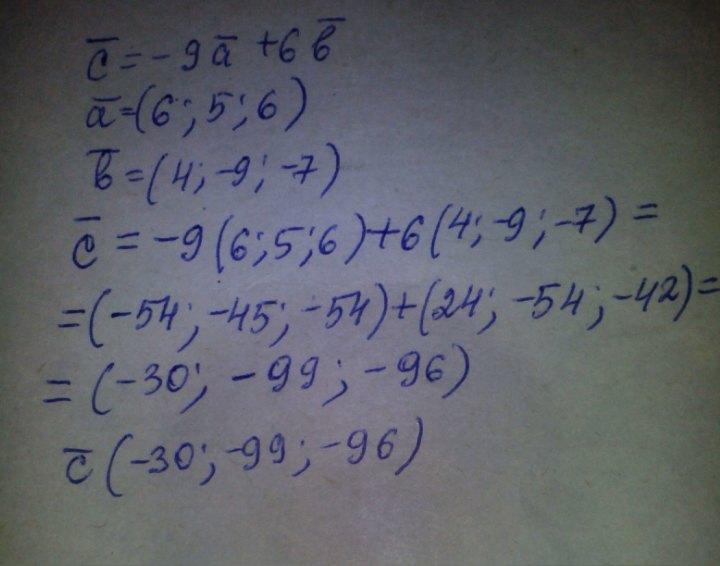 c̅ = -9a̅ + 6b̅
a̅ = (6; 5; 6)
b̅ = (4; -9; -7)
c̅ = -9(6; 5; 6) + 6(4; -9; -7) =
= (-54; -45; -54) + (24; -54; -42) =
= (-30; -99; -96)
c̅ (-30; -99; -96)